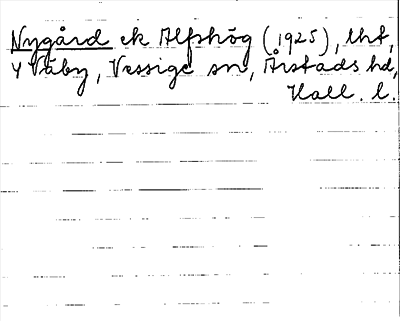 Nygård ek Alfshög (1925), lht,
Y Väby, Vessige sn, Årstads hd,
Hall. l.